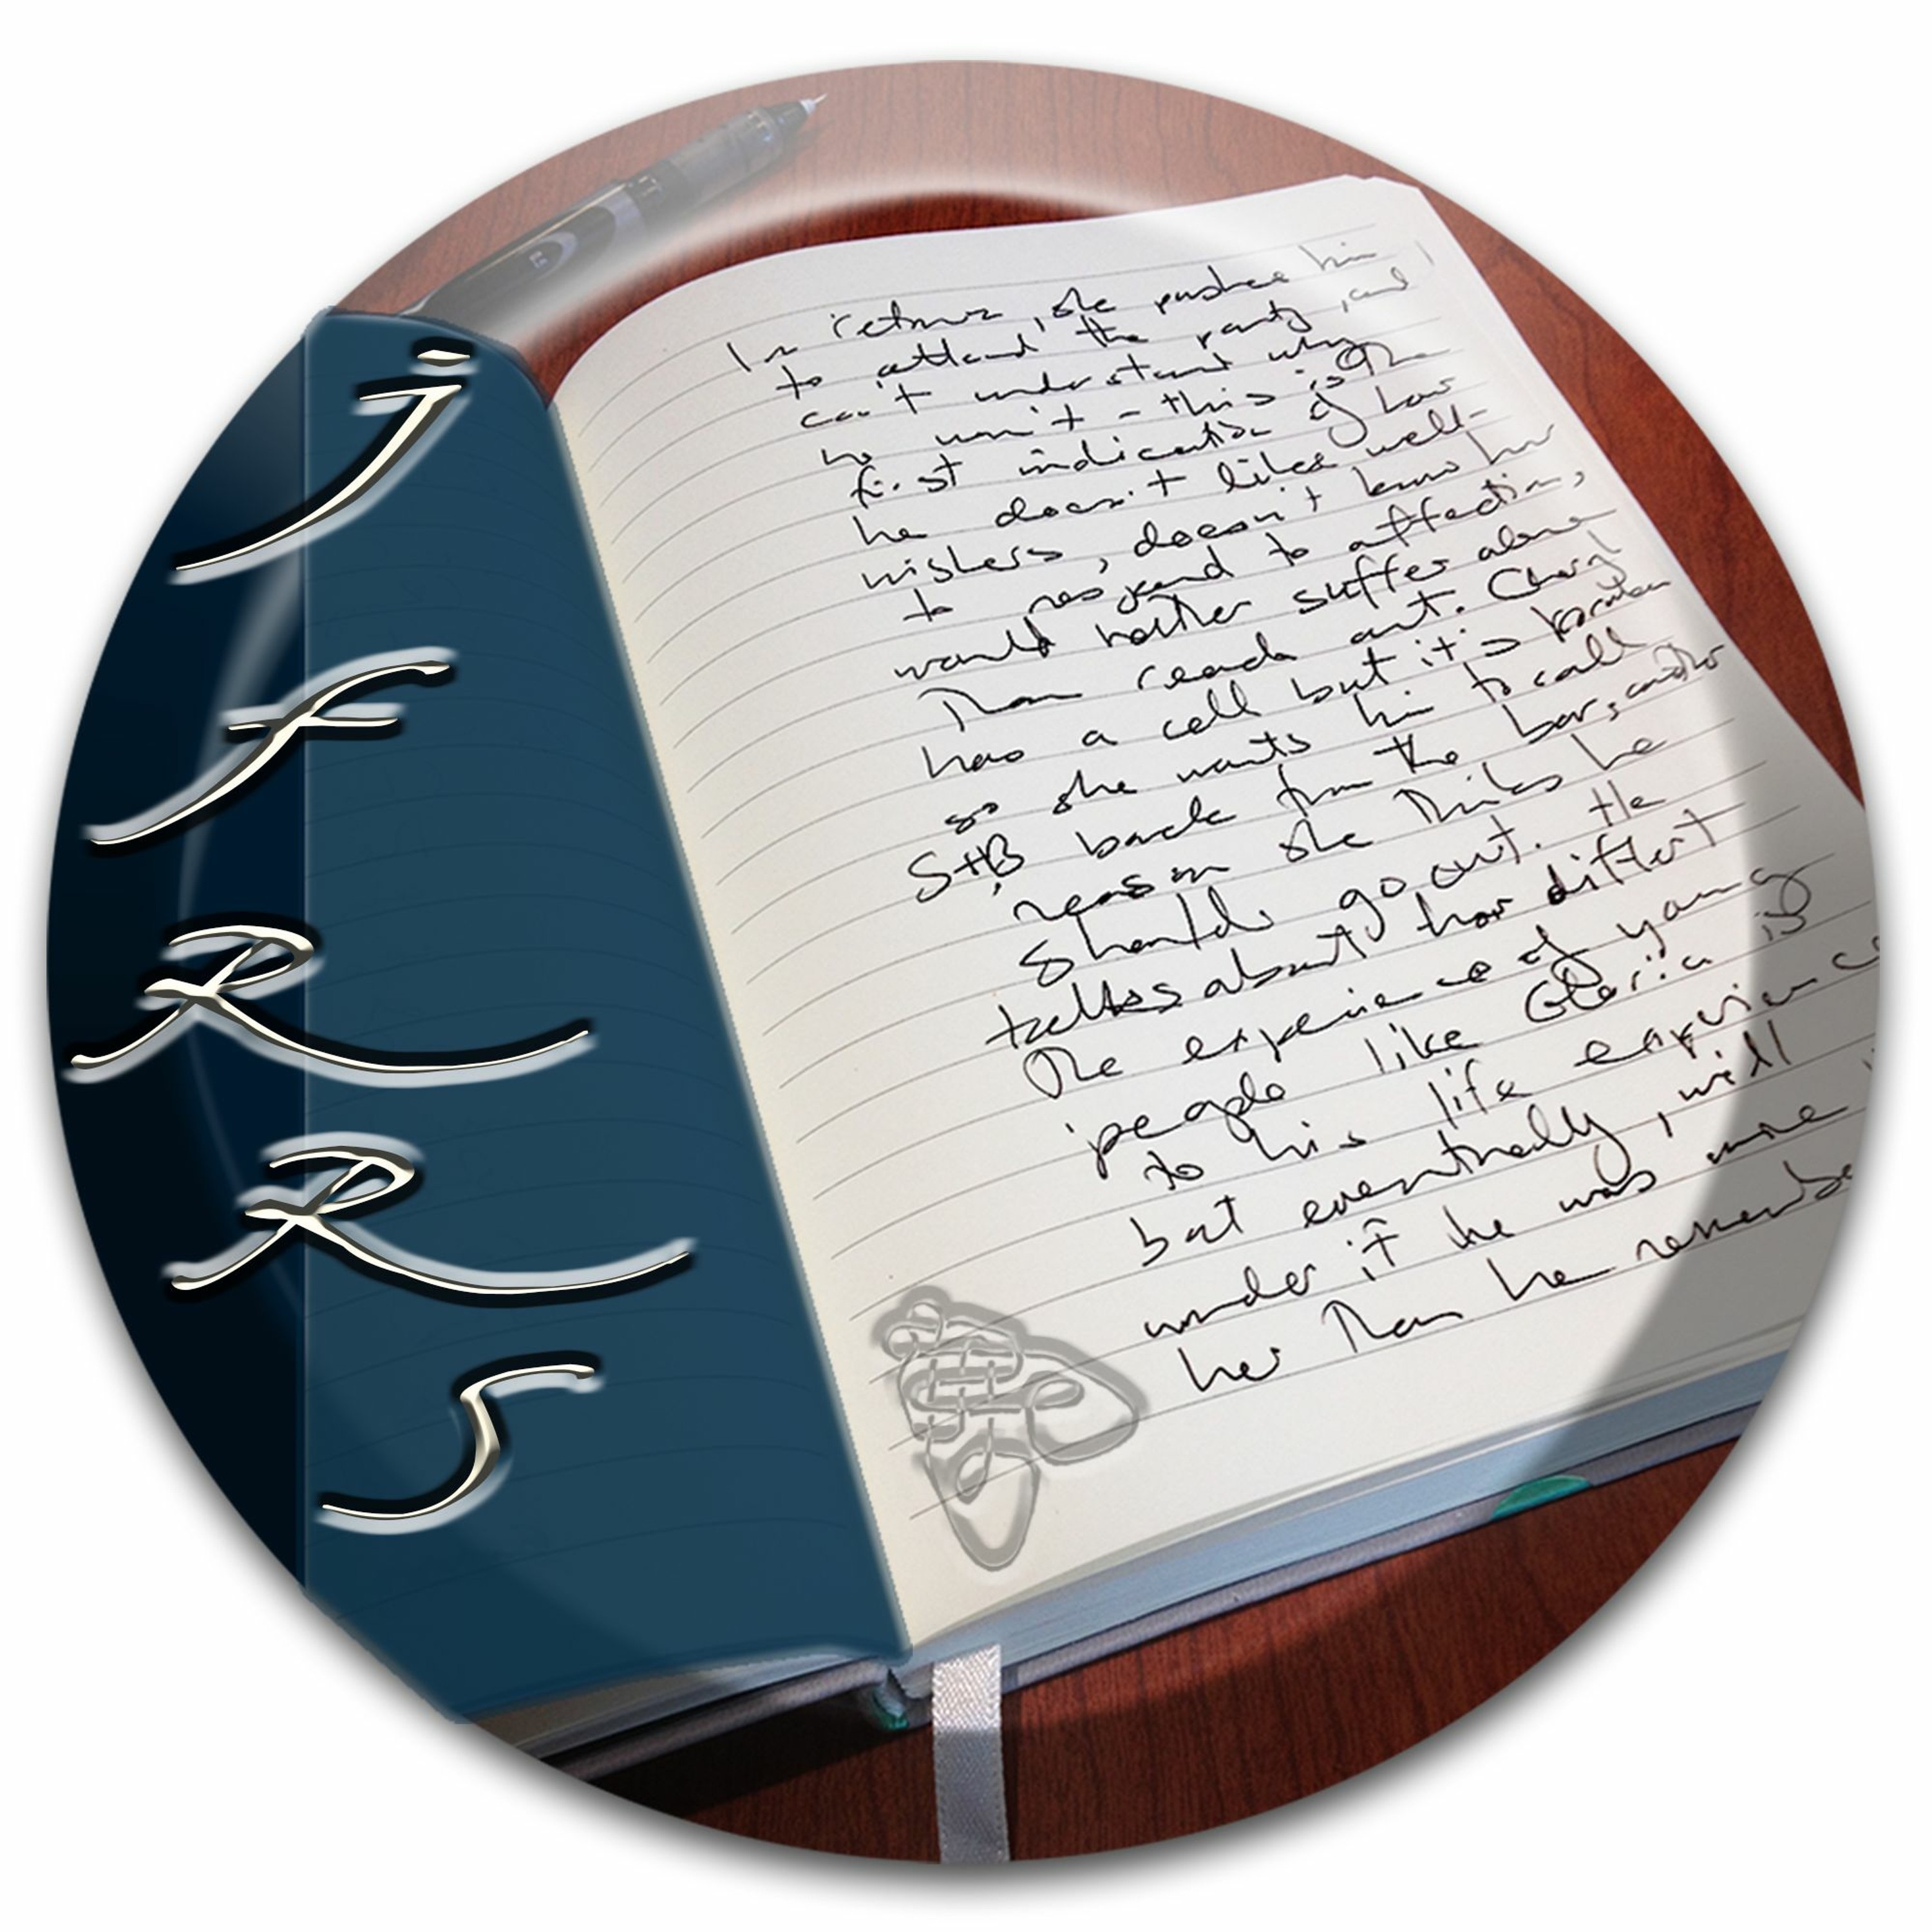 J
f
R
R
S
In return, she pushes him
to attend the party, and
can't understand why
he won't - this is the
first indication of how
he doesn't like well-
wishers, doesn't know how
to respond to affection,
would rather suffer alone
than reach out. Cheryl
has a cell but it's broken
so she wants him to call
S+B back from the bar, another
reason she thinks he
should go out. He
talks about how different
the experience of young
people like Gloria is
to his life experience
but eventually, will
wonder if he was more
her than he remembe